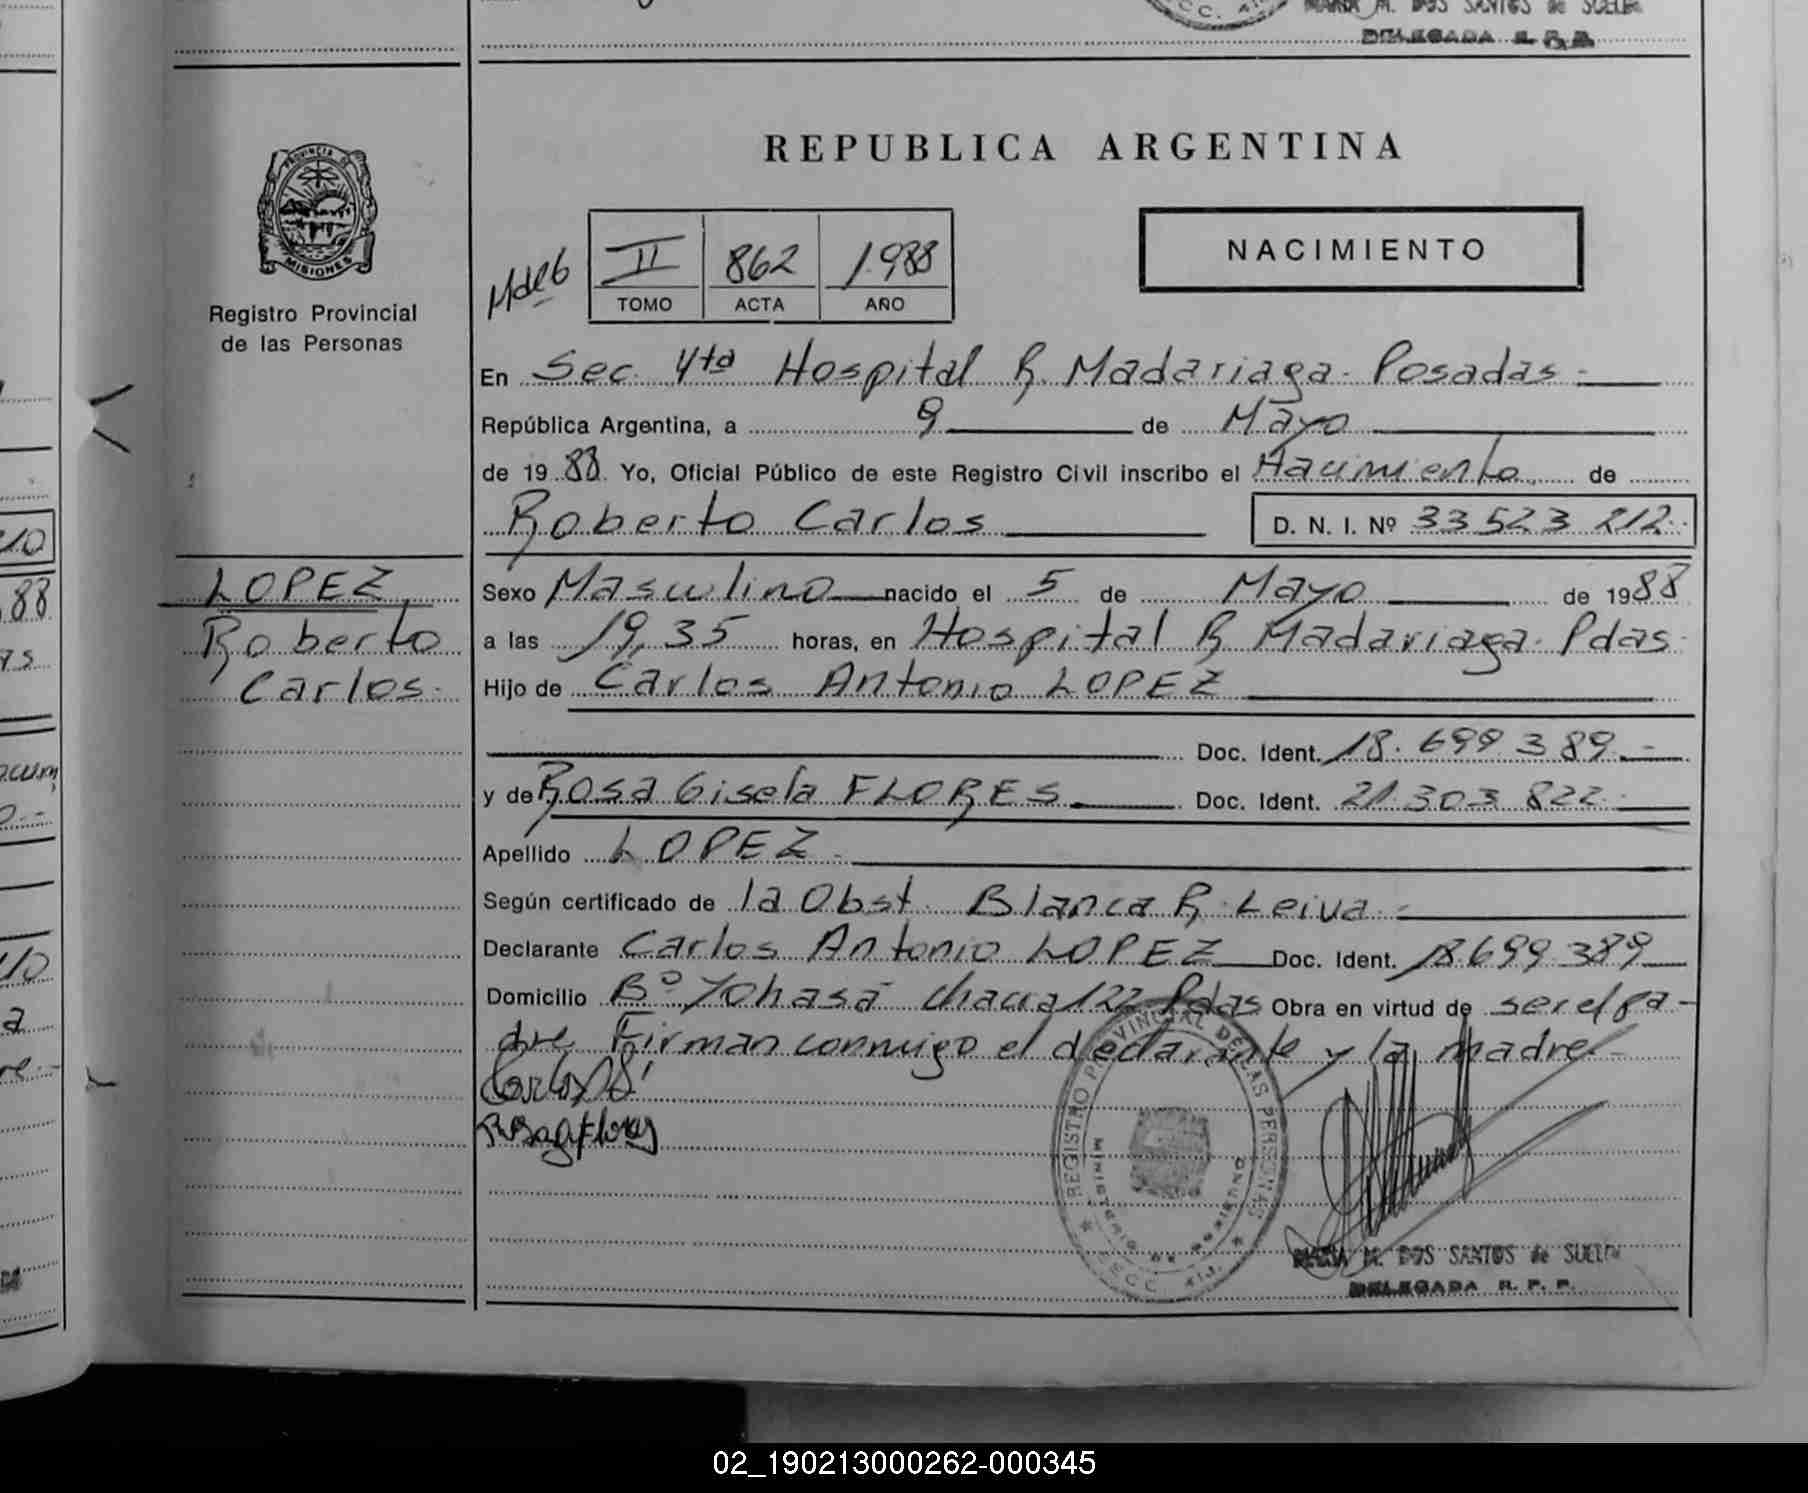 MARIA M. DOS SANTOS de SUELDO
DELEGADA R. P. P.
PROVINCIA DE
MISIONES
Registro Provincial
de las Personas
REPUBLICA ARGENTINA
II 862 1988
TOMO ACTA AÑO
NACIMIENTO
En Sec. 4ta Hospital R. Madariaga. Posadas.
República Argentina, a 9 de Mayo
de 1988 Yo, Oficial Público de este Registro Civil inscribo el Nacimiento de
Roberto Carlos D. N. I. Nº 33 523 212
LOPEZ,
Roberto
Carlos.
Sexo Masculino nacido el 5 de Mayo de 1988
a las 19,35 horas, en Hospital R Madariaga. Pdas.
Hijo de Carlos Antonio LOPEZ
Doc. Ident. 18. 699 389.-
y de Rosa Gisela FLORES. Doc. Ident. 21 303 822.
Apellido LOPEZ.
Según certificado de la Obst. Blanca R. Leiva.
Declarante Carlos Antonio LOPEZ Doc. Ident. 18.699 389
Domicilio Bº Yohasá chacra 122 Pdas Obra en virtud de ser el pa-
dre. Firman conmigo el declarante y la madre.-
REGISTRO PROVINCIAL DE LAS PERSONAS
MINISTERIO DE GOBIERNO
MARIA M. DOS SANTOS de SUELDO
DELEGADA R. P. P.
02_190213000262-000345